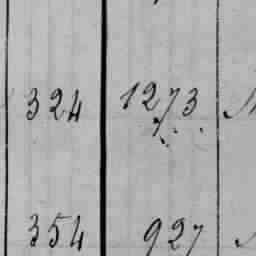 324 1273
354 927